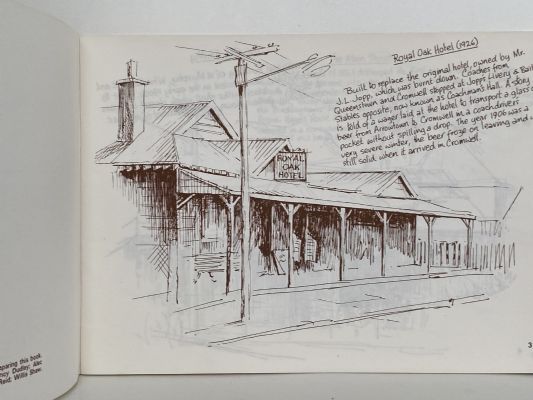 Royal Oak Hotel (1926)
Built to replace the original hotel, owned by Mr.
J.L. Jopp, which was burnt down. Coaches from
Queenstown and Cromwell stopped at Jopp's Livery & Bait
Stables opposite, now known as Coachman's Hall. A story
is told of a wager laid at the hotel to transport a glass of
beer from Arrowtown to Cromwell in a coachdriver's
pocket without spilling a drop. The year 1906 was a
very severe winter, the beer froze on leaving and
still solid when it arrived in Cromwell.
ROYAL
OAK
HOTEL
paring this book.
Dudley; Alec
Reid; Willis Shaw.
3